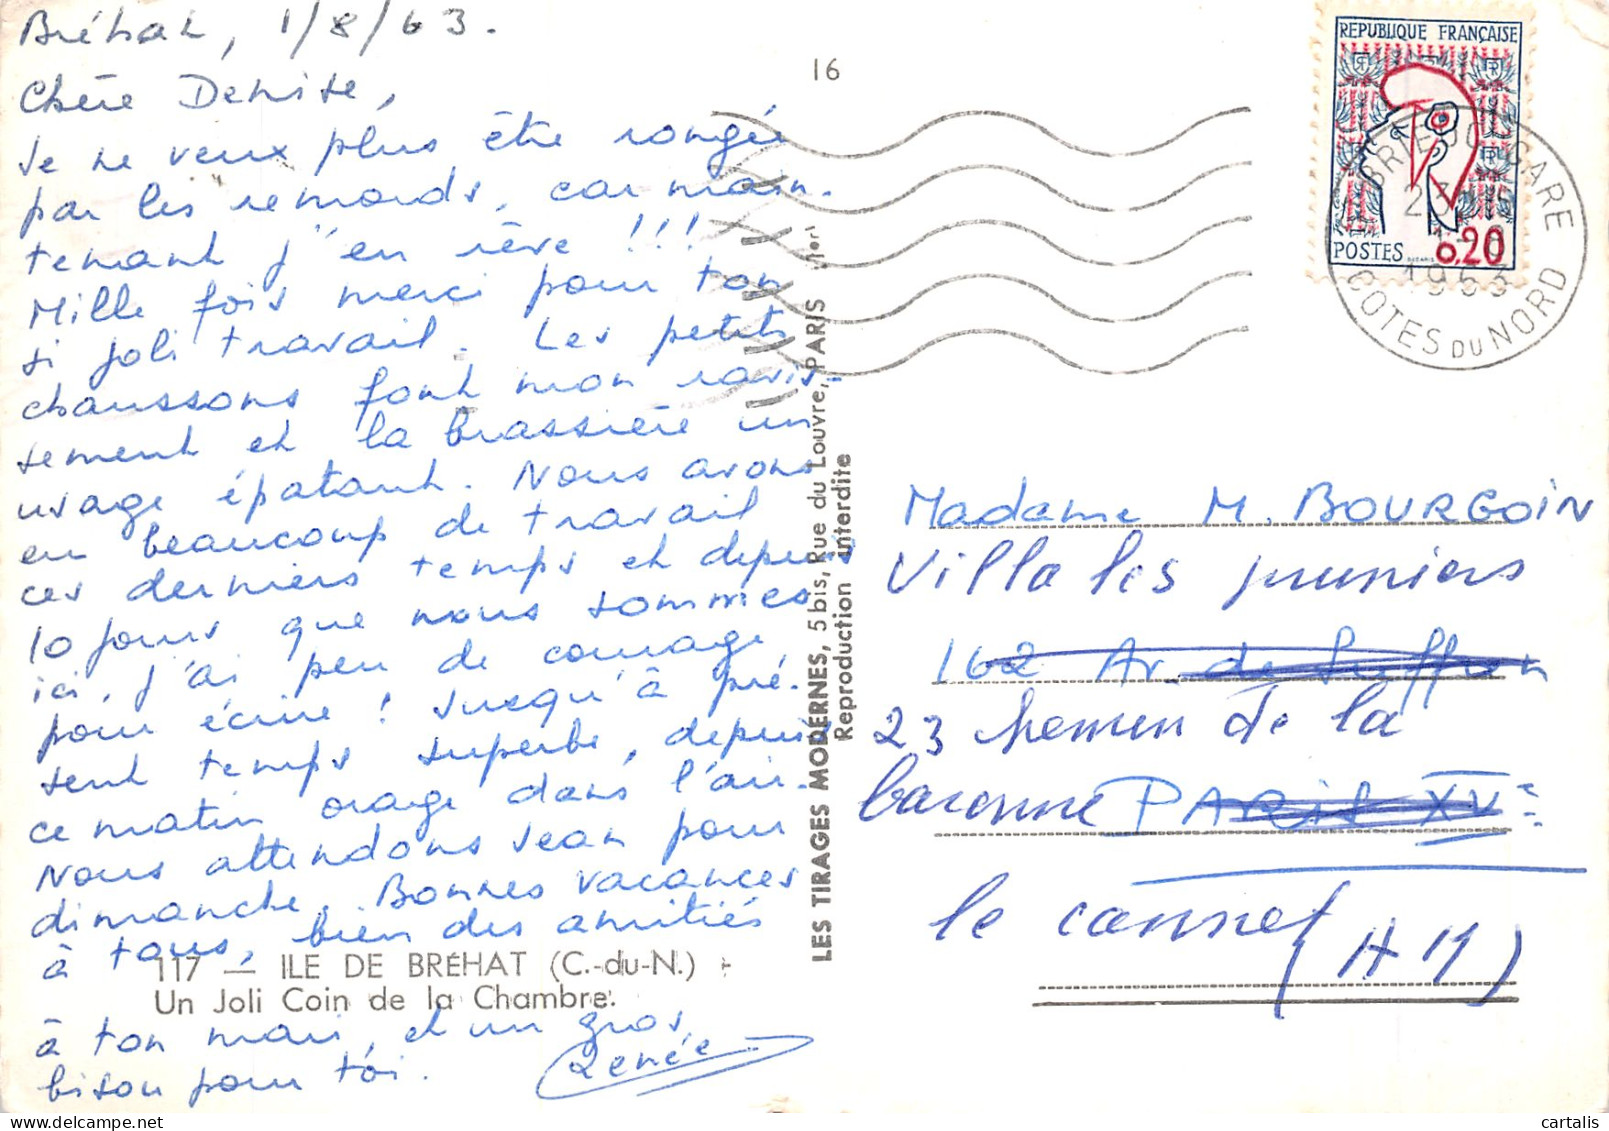 Bréhat, 1/8/63.
Chère Denise,
Je ne veux plus être rongée
par les remords, car main-
tenant j'en rêve !!!
Mille fois merci pour ton
si joli travail. Les petits
chaussons font mon ravis-
sement et la brassière un
usage épatant. Nous avons
eu beaucoup de travail
ces derniers temps et depuis
10 jours que nous sommes
ici, j'ai peu de courage
pour écrire ! Jusqu'à pré-
sent temps superbe, depuis
ce matin orage dans l'air.
Nous attendons Jean pour
dimanche. Bonnes vacances
à tous, bien des amitiés
117 — ILE DE BRÉHAT (C.-du-N.)
Un Joli Coin de la Chambre.
à ton mari, et un gros
bisou pour toi.
Renée
16
LES TIRAGES MODERNES, 5 bis, Rue du Louvre, PARIS
Reproduction interdite
REPUBLIQUE FRANÇAISE
POSTES 0,20
ST BRIEUC GARE
1963
COTES DU NORD
Madame M. BOURGOIN
Villa les pruniers
162 Av. de Suffren
23 chemin de la
baronne PARIS XVe
le cannet
(AM)
cartalis